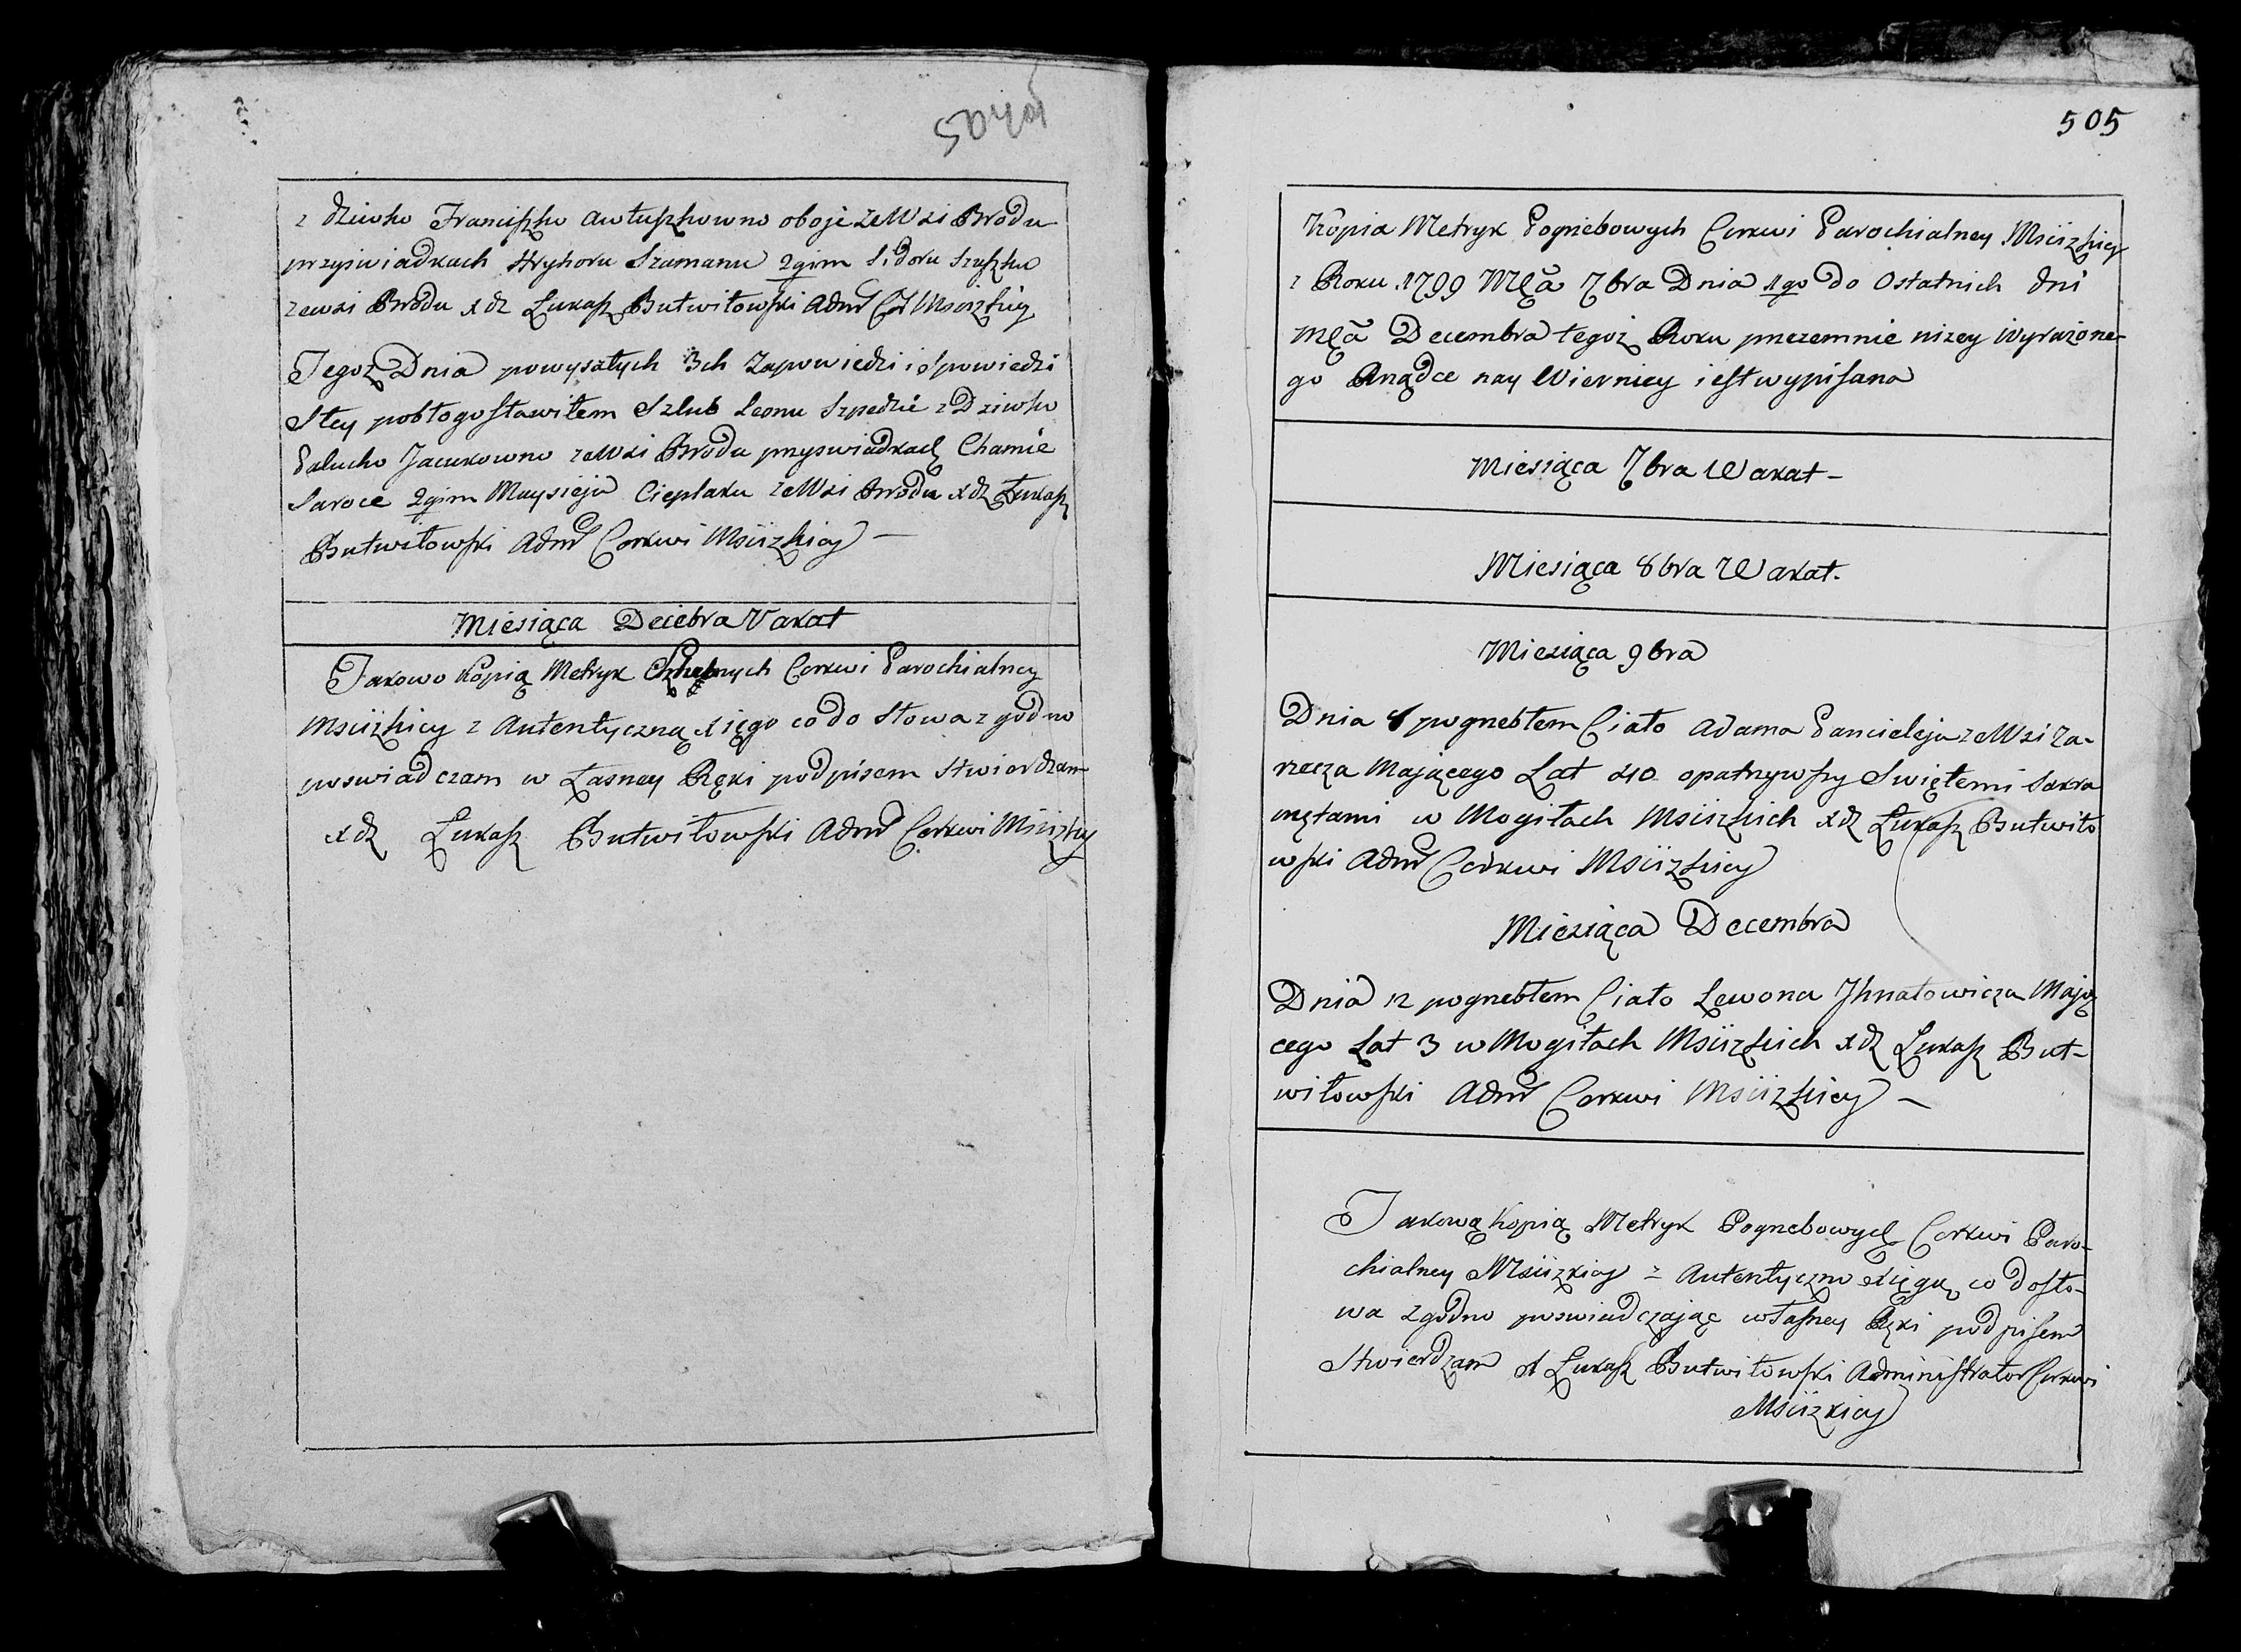 504об
z dziwko Franciszko Awtuszkowno oboje zeWsi Brodu
przyswiadkach Hryhoru Szamanu 2gim Sidoru Szuszku
zewsi Brodu xdz Łukasz Butwiłowski Admr C Msciżkiey
Tegoż Dnia powyszłych 3ch Zapowiedzi i spowiedzi
Stey pobłogosławiłem Szlub Leonu Szpedzie z Dziwko
Palucho Jacukowno zeWsi Brodu przyswiadkach Chamie
Saroce 2gim Maysieju Cieplaku zeWsi Brodu xdz Łukasz
Butwiłowski Admr Cerkwi Msciżkiey –
Miesiąca Decebra Vakat
Takowo Kopią Metryk Cerkwi Parochialney
Msciżkiey z Autentyczną xięgo co do Słowa zgodno
poswiadczam w Łasney Ręki podpisem Stwierdzam
xdz Łukasz Butwiłowski Admr Cerkwi Msciżkiey
505
Kopia Metryk Pogrzebowych Cerkwi Parochialney Msciżkiey
z Roku 1799 Mca 7bra Dnia 1go do Ostatnich dni
Mca Decembra tegoż Roku przezemnie niżey Wyrażone-
go Rządce nay Wierniey iest wypisana
Miesiąca 7bra Wakat –
Miesiąca 8bra Wakat.
Miesiąca 9bra
Dnia 8 pogrzebłem Ciało Adama Pancieleja zeWsi Za-
rzecza Mającego Lat 40 opatrzywszy Swiętemi Sakra
mętami w Mogiłach Msciżkich xdz Łukasz Butwiło
wski Admr Cerkwi Msciżkiey
Miesiąca Decembra
Dnia 12 pogrzebłem Ciało Lewona Jhnatowicza Mają
cego Lat 3 w Mogiłach Msciżkich xdz Łukasz But-
wiłowski Admr Cerkwi Msciżkiey –
Takową Kopią Metryk Pogrzebowych Cerkwi Paro-
chialney Msciżkiey z Autentyczno xięgą co do Sło-
wa zgodno poswiadczając własney Ręki podpisem
Stwierdzam X Łukasz Butwiłowski Administrator Cerkwi
Msciżkiey